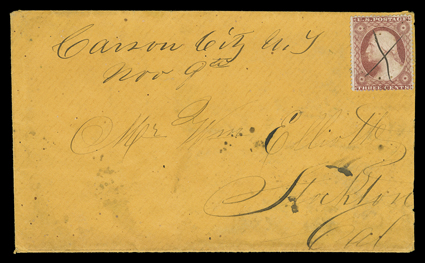 U.S. POSTAGE
THREE CENTS
Carson City U.T
Nov 9th
Mr Wm Elliott
Stockton
Cal